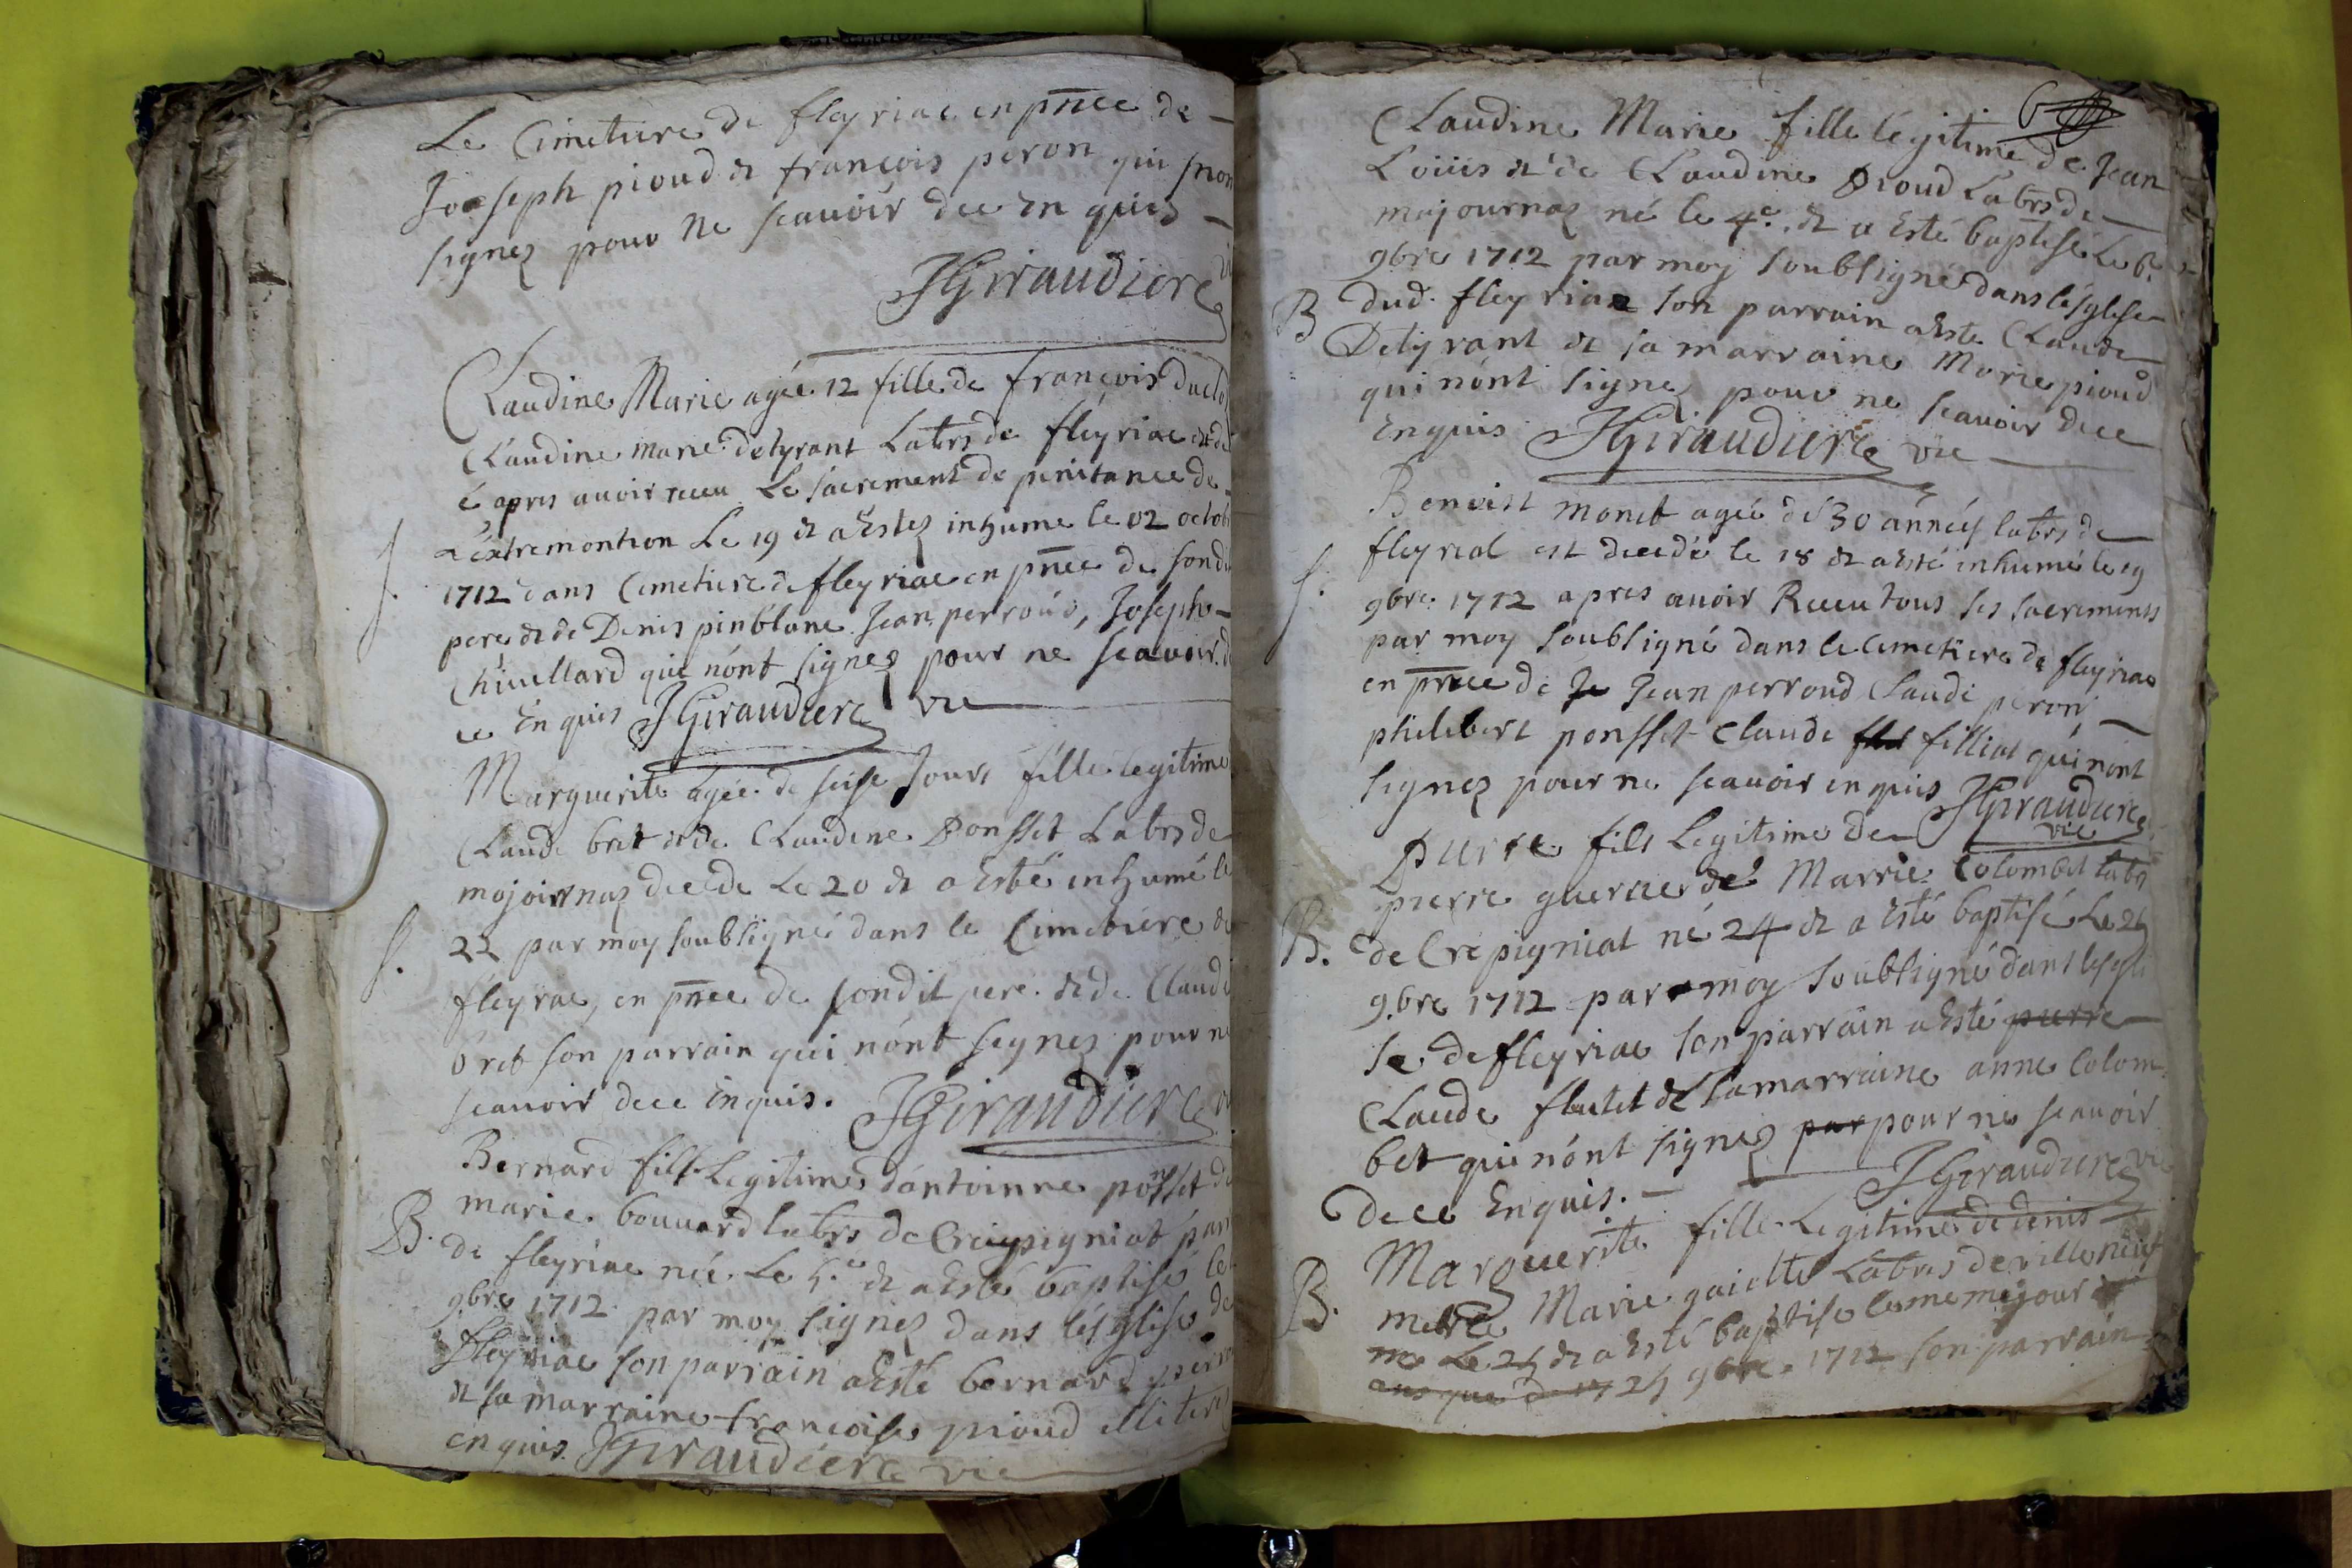 Le Cimetiere de fleyriac en pnce de
Joseph pioud & françois peron qui
signez pour ne scauoir de ce en quis
JGiraudiere
Claudine Marie agée 12 fille de françois
Claudine marie detyrant Labrs de fleyriac
é apres auoir receu Le sacrement de penitance de
L'extremontion Le 19 & a Estez inhume le 02 octob
1712 dans Cimetiere de fleyriac en pnce de sondi
pere & de Denis pinblanc Jean perroud, Joseph
Chiuillard qui nónt signez pour ne scauoir d
ce En quis JGiraudiere vic
Marguerite agée de seise Jours fille legitime
Claude bret & de Claudine Ponsset Labrs de
mojournaz decede Le 20 & a Esté inhumé le
S. 22 par moy soubsigné dans le Cimetiere de
fleyriac, en pnce de sondit pere & de Claude
son parrain qui nónt signez pour ne
scauoir de ce Enquis. JGiraudiere
Bernard fils Legitime dántoinne ponsset de
marie bouuard labrs de Creipigniat par
B. de fleyriac née Le 5e & a Esté baptisé le
9bre 1712 par moy signez dans léglise de
fleyriac son parrain a Esté bernard
& sa marraine francoise pioud
en quis JGiraudiere vic
6
Claudine Marie fille légitime de Jean
Loüis & de Claudine Pioud Labrs de
majournaz né le 4e. & a Esté baptisé Le 6e
9bre 1712 par moy soubsigné dans léglise
B dud. fleyriac son parrain a Esté Claude
Detyrant & sa marraine Marie pioud
qui nónt signez pour ne scauoir de ce
Enquis JGiraudiere vic
Benoist monet agée de 30 années labrs de
fleyriat est decedé le 18 & a Esté inhumé le 19
S. 9bre 1712 apres auoir Receu tous ses sacrements
par moy soubsigné dans le Cimetiere de fleyriac
en pnce de Je Jean perroud Claude peron
philibert ponsset Claude filliat qui nont
signez pour ne scauoir en quis JGiraudiere
vic
Pierre fils Legitime de
pierre guerrier & Marrie Colombet labrs
B. de Crepigniat né 24 & a Esté baptisé Le 25
9bre 1712 par moy soubsigné dans lesgli
se de fleyriac son parrain a Esté pierre
Claude flutet & sa marraine anne Colom
bet qui nónt signez par pour ne scauoir
de ce Enquis. JGiraudiere vic
Marguerite fille Legitime de denis
B. Marie gaiette Labrs de villeneuf
Le 25 & a Esté baptisé le meme jour
25 9bre 1712 son parrain